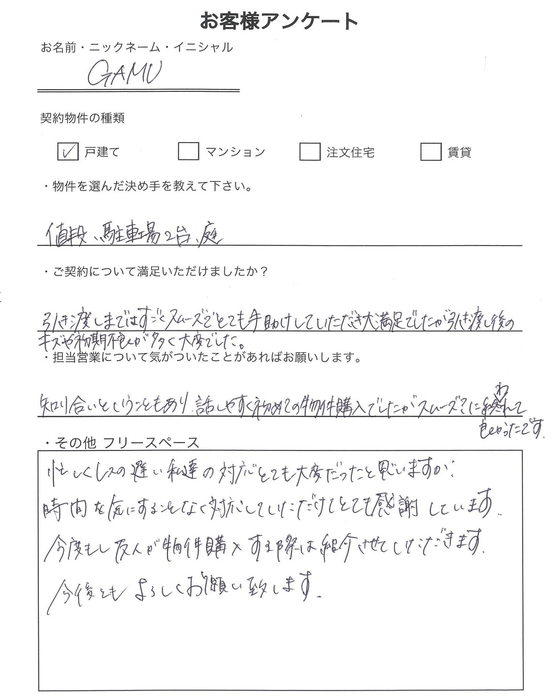 お客様アンケート
お名前・ニックネーム・イニシャル
GAMU
契約物件の種類
戸建て マンション 注文住宅 賃貸
・物件を選んだ決め手を教えて下さい。
値段、駐車場2台、庭
・ご契約について満足いただけましたか？
引き渡しまではすごくスムーズでとても手助けしていただき大満足でしたが引き渡し後の
キズや初期不良が多く大変でした。
・担当営業について気がついたことがあればお願いします。
知り合いということもあり、話しやすく初めての物件購入でしたがスムーズに終われて
良かったです。
・その他 フリースペース
忙しくレスの遅い私達の対応とても大変だったと思いますが、
時間を気にすることなく対応していただけてとても感謝しています。
今度もし友人が物件購入する際は紹介させていただきます。
今後ともよろしくお願い致します。